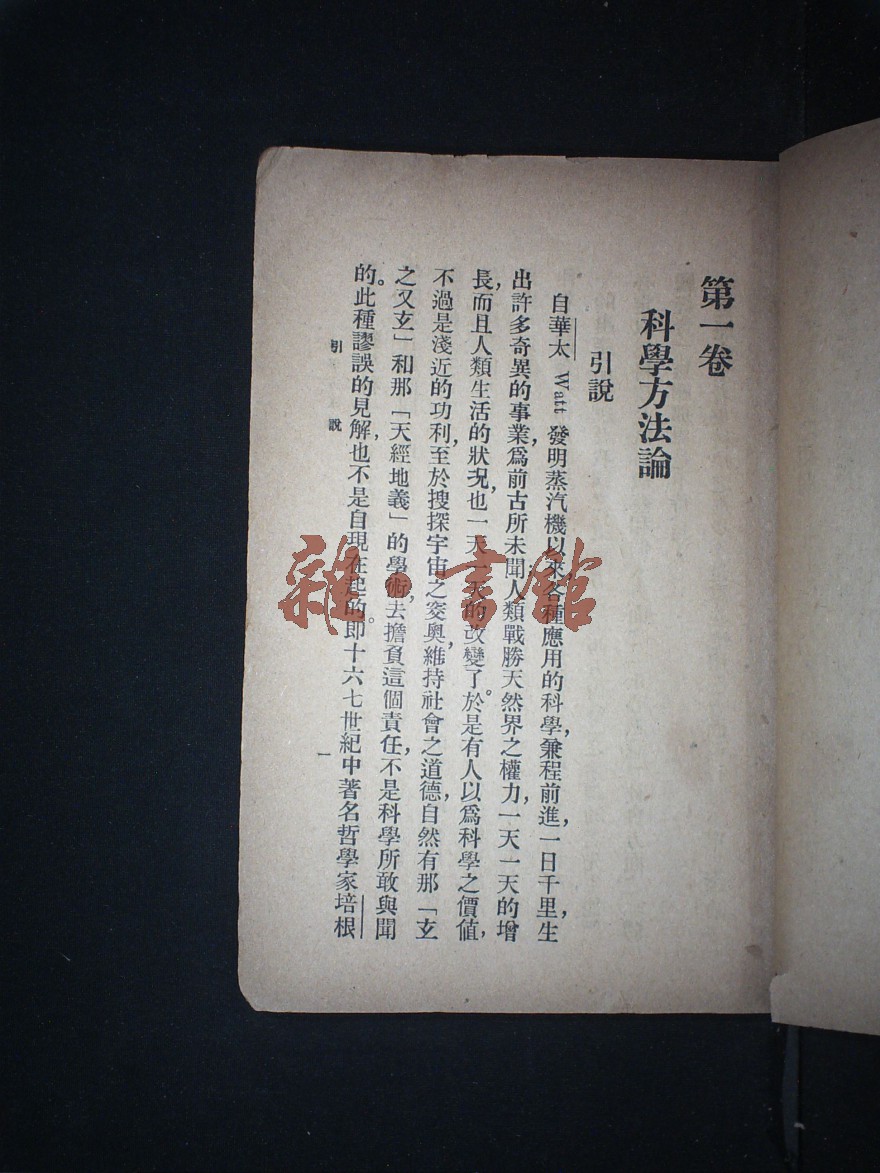 第一卷
科學方法論
引說
自華太 Watt 發明蒸汽機以來各種應用的科學,兼程前進,一日千里,生
出許多奇異的事業,爲前古所未聞人類戰勝天然界之權力,一天一天的增
長,而且人類生活的狀況,也一天一天的改變了。於是有人以爲科學之價值,
不過是淺近的功利,至於搜探宇宙之窔奧,維持社會之道德,自然有那「玄
之又玄」和那「天經地義」的學術,去擔負這個責任,不是科學所敢與聞
的。此種謬誤的見解,也不是自現在起的。即十六七世紀中著名哲學家培根
引說
一
雜·書館